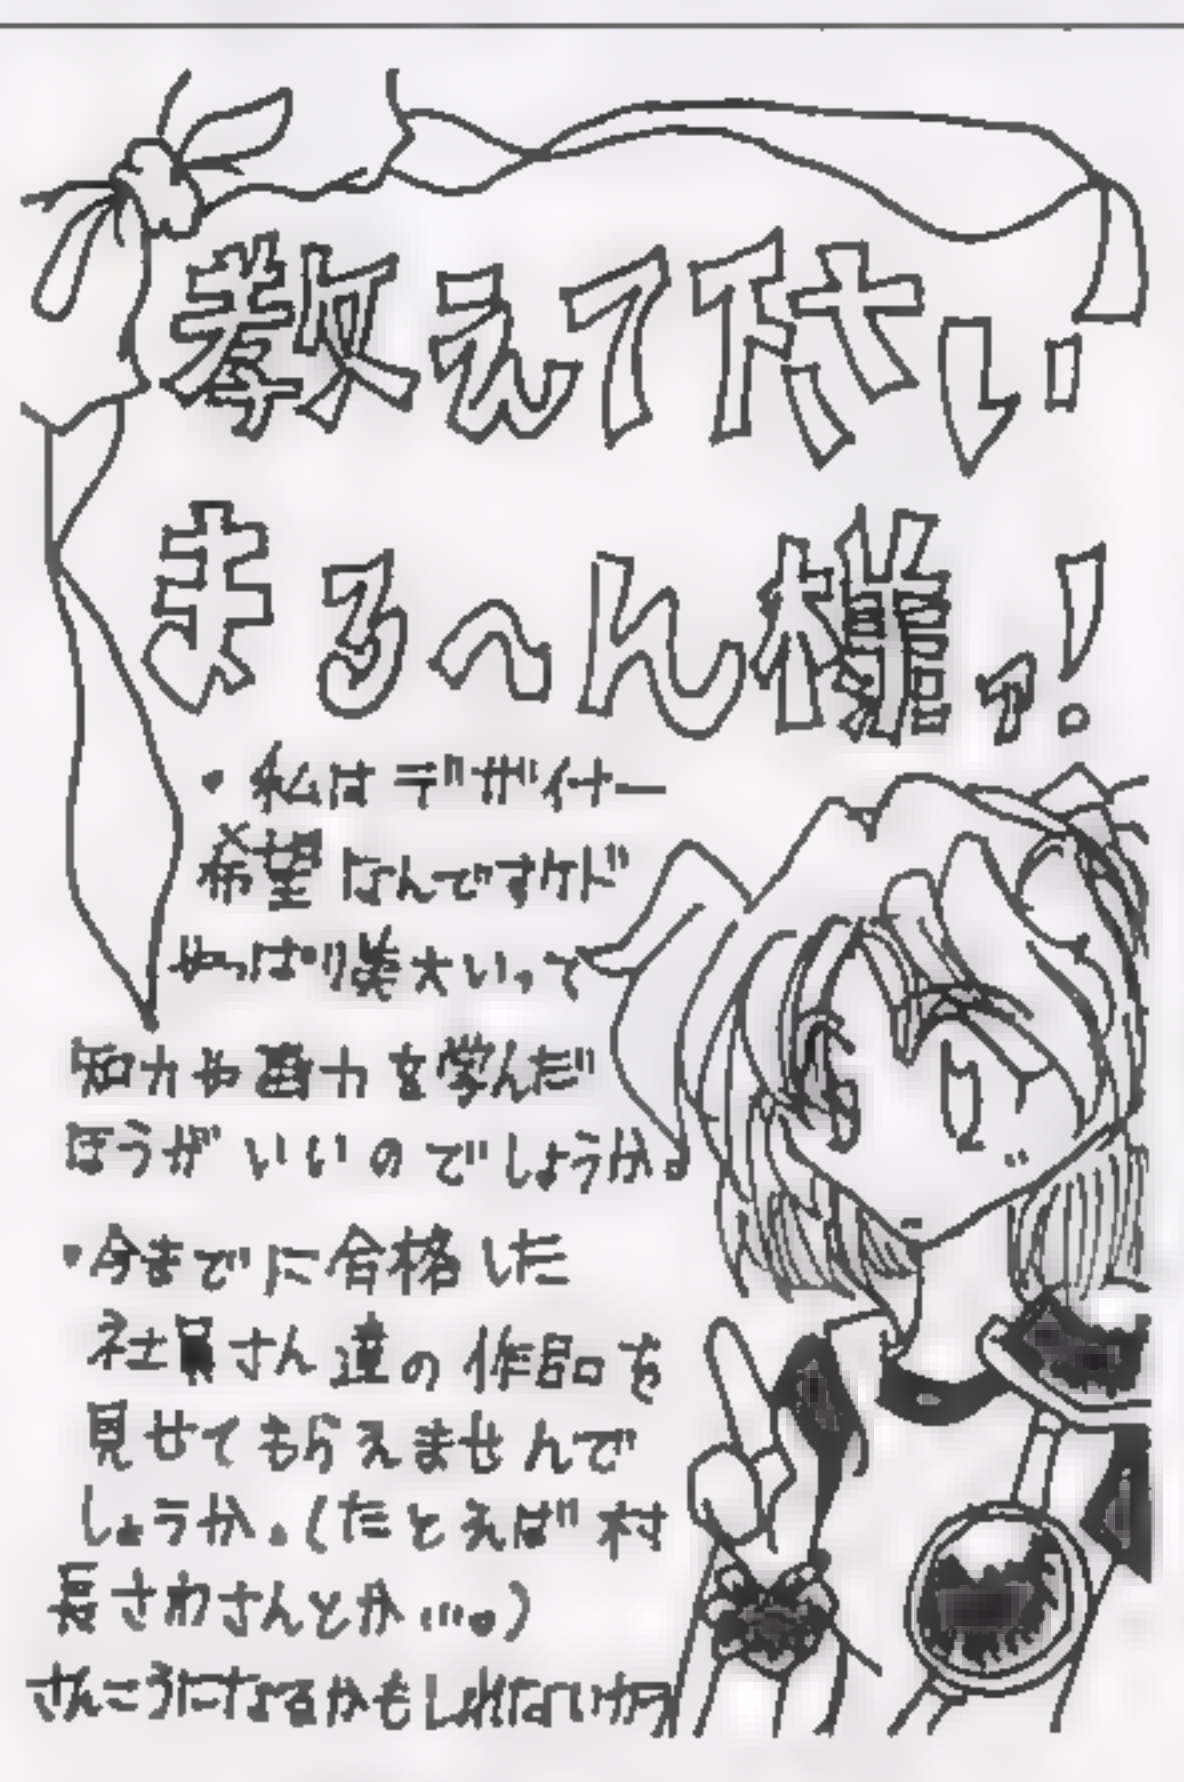 教えて下さい!
まる〜ん様ッ!
・私はデザイナー
希望なんですケド
やっぱり美大いって
知力や画力を学んだ
ほうがいいのでしょうか。
・今までに合格した
社員さん達の作品を
見せてもらえませんで
しょうか。(たとえば村
長さわさんとか…。)
さんこうになるかもしれないから